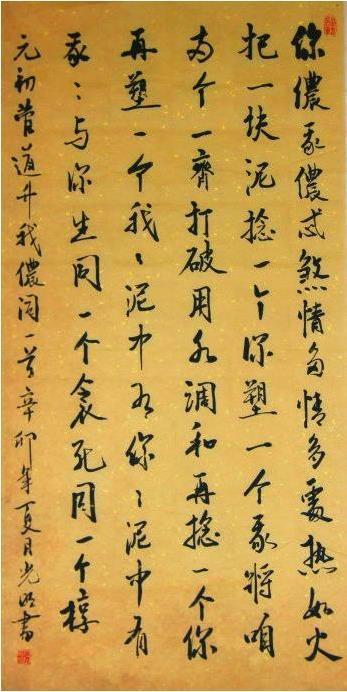 你儂我儂忒煞情多情多處热如火
把一块泥捻一个你塑一个我将咱
两个一齊打破用水调和再捻一个你
再塑一个我〻泥中有你〻泥中有
我〻与你生同一个衾死同一个椁
元初管道升我儂词一首辛卯年夏月光书